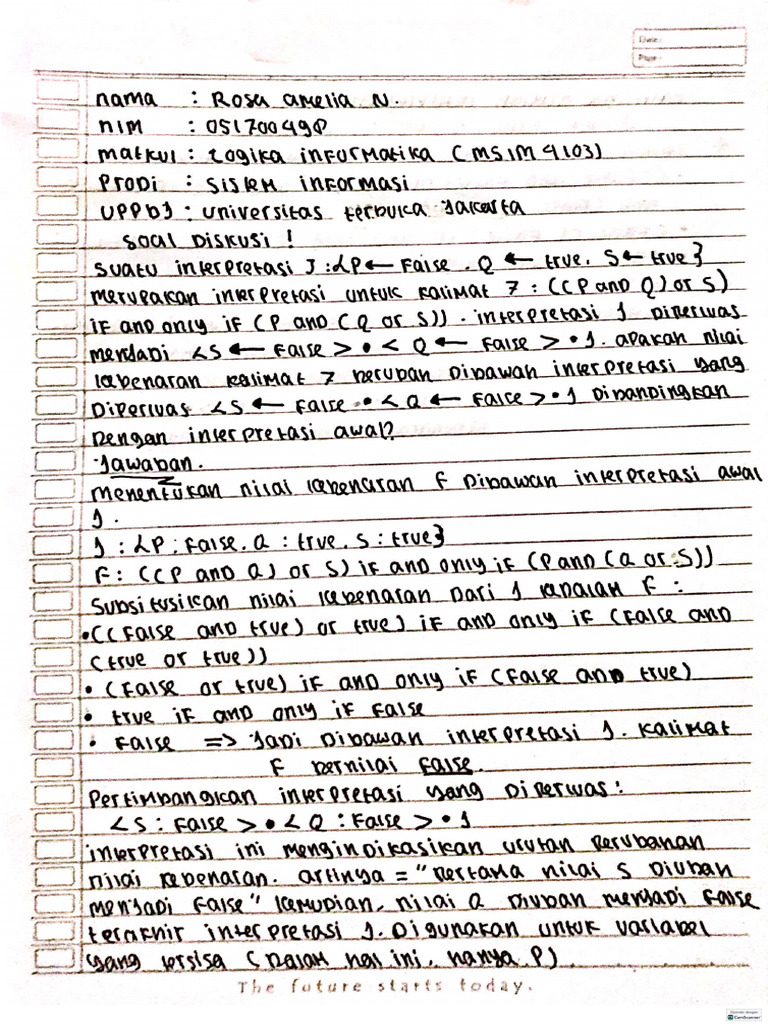 Date:
Page:
nama : Rosa amelia N.
nim : 051700498
matkul : Logika informatika (MSIM4103)
Prodi : Sistem informasi
UPPBJ : universitas terbuka Jakarta
soal Diskusi !
suatu interpretasi J : {P ← False. Q ← true. S ← true}
merupakan interpretasi untuk kalimat 7 : ((P and Q) or S)
if and only if (P and (Q or S)). interpretasi J Diperluas
menjadi <S ← False> • < Q ← False > • J. apakah nilai
kebenaran kalimat 7 berubah Dibawah interpretasi yang
Diperluas <S ← False • < Q ← False > • J Dibandingkan
Dengan interpretasi awal?
Jawaban.
menentukan nilai kebenaran F Dibawah interpretasi awal
J.
J : {P : False. Q : true. S : true}
F : ((P and Q) or S) if and only if (P and (Q or S))
Subsitusikan nilai kebenaran Dari J kedalam F :
• ((False and true) or true) if and only if (False and
(true or true))
• (False or true) if and only if (False and true)
• true if and only if False
• False => Jadi Dibawah interpretasi J. Kalimat
F bernilai False.
Pertimbangkan interpretasi yang Diperluas :
<S : False > • < Q : False > • J
interpretasi ini mengindikasikan urutan perubahan
nilai kebenaran. artinya = "Pertama nilai S Diubah
menjadi False" kemudian, nilai Q Diubah menjadi False
terakhir interpretasi J. Digunakan untuk variabel
yang tersisa (Dalam hal ini, hanya P)
The future starts today.
CamScanner